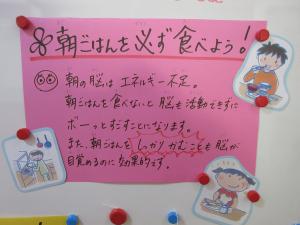 朝ごはんを必ず食べよう!
朝の脳はエネルギー不足。
朝ごはんを食べないと脳も活動できずに
ボーっとすごすことになります。
また、朝ごはんをしっかりかむことも脳が
目覚めるのに効果的です。